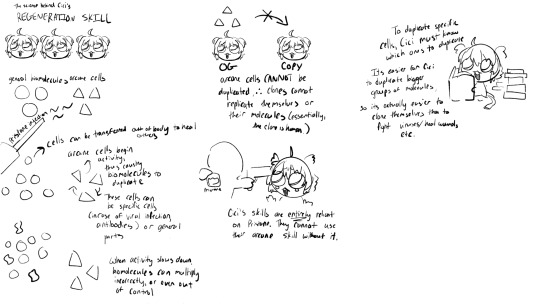 The science behind Cici's
REGENERATION SKILL
general biomolecules
arcane cells
Cells can be transferred out of body to heal
others
arcane cells begin
activity,
thus causing
biomolecules to
duplicate
These cells can
be specific cells
(in case of viral infection,
antibodies) or general
parts
When activity slows down,
biomolecules can multiply
incorrectly, or even out
of control
OG
COPY
arcane cells CANNOT be
duplicated ∴ clones cannot
replicate themselves or
their molecules (essentially,
the clone is human)
Cici's skills are entirely reliant
on Privone. They cannot use
their arcane skill without it.
To duplicate specific
cells, Cici must know
which ones to duplicate
It's easier for Cici
to duplicate bigger
groups of molecules,
so its actually easier to
clone themselves than to
fight viruses/heal wounds,
etc.